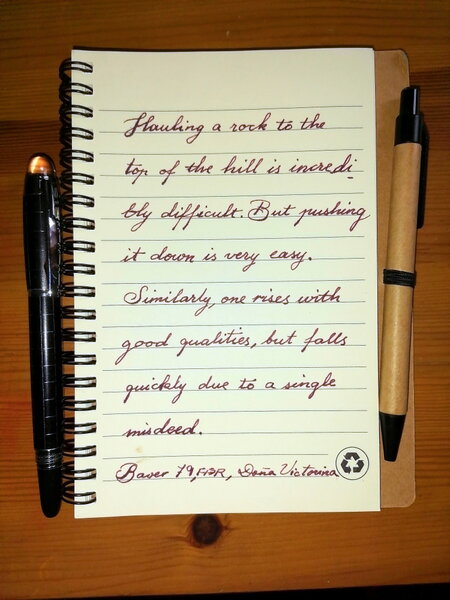 Hauling a rock to the
top of the hill is incredi_
bly difficult. But pushing
it down is very easy.
Similarly, one rises with
good qualities, but falls
quickly due to a single
misdeed.
Baver 79, FPR, Doña Victorina